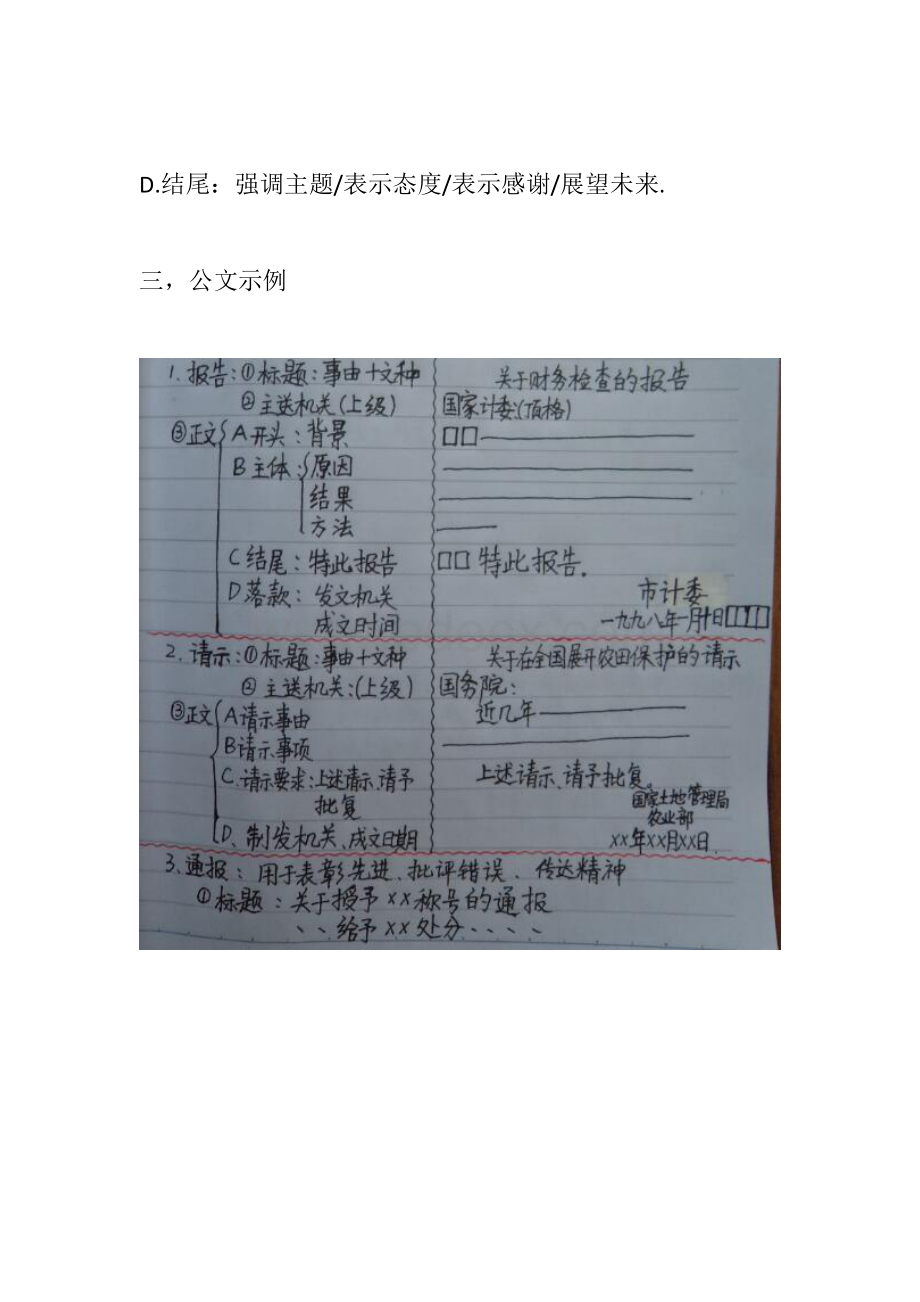 D.结尾：强调主题/表示态度/表示感谢/展望未来.
三，公文示例
1.报告:①标题:事由十文种
②主送机关(上级)
③正文 A开头:背景
B主体:原因
结果
方法
C结尾:特此报告
D落款:发文机关
成文时间
关于财务检查的报告
国家计委:(顶格)
□□
□□特此报告.
市计委
一九九八年一月十日□□□□
2.请示:①标题:事由十文种
②主送机关:(上级)
③正文 A请示事由
B请示事项
C.请示要求:上述请示、请予
批复
D、制发机关、成文日期
关于在全国展开农田保护的请示
国务院:
近几年
上述请示、请予批复。
国家土地管理局
农业部
xx年xx月xx日.
3、通报:用于表彰先进、批评错误、传达精神
①标题:关于授予xx称号的通报
、、给予xx处分、、、、